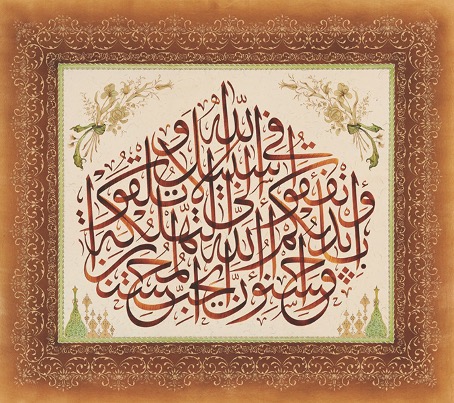 وأنفقوا في سبيل الله ولا تلقوا
بأيديكم إلى التهلكة
وأحسنوا إن الله يحب المحسنين